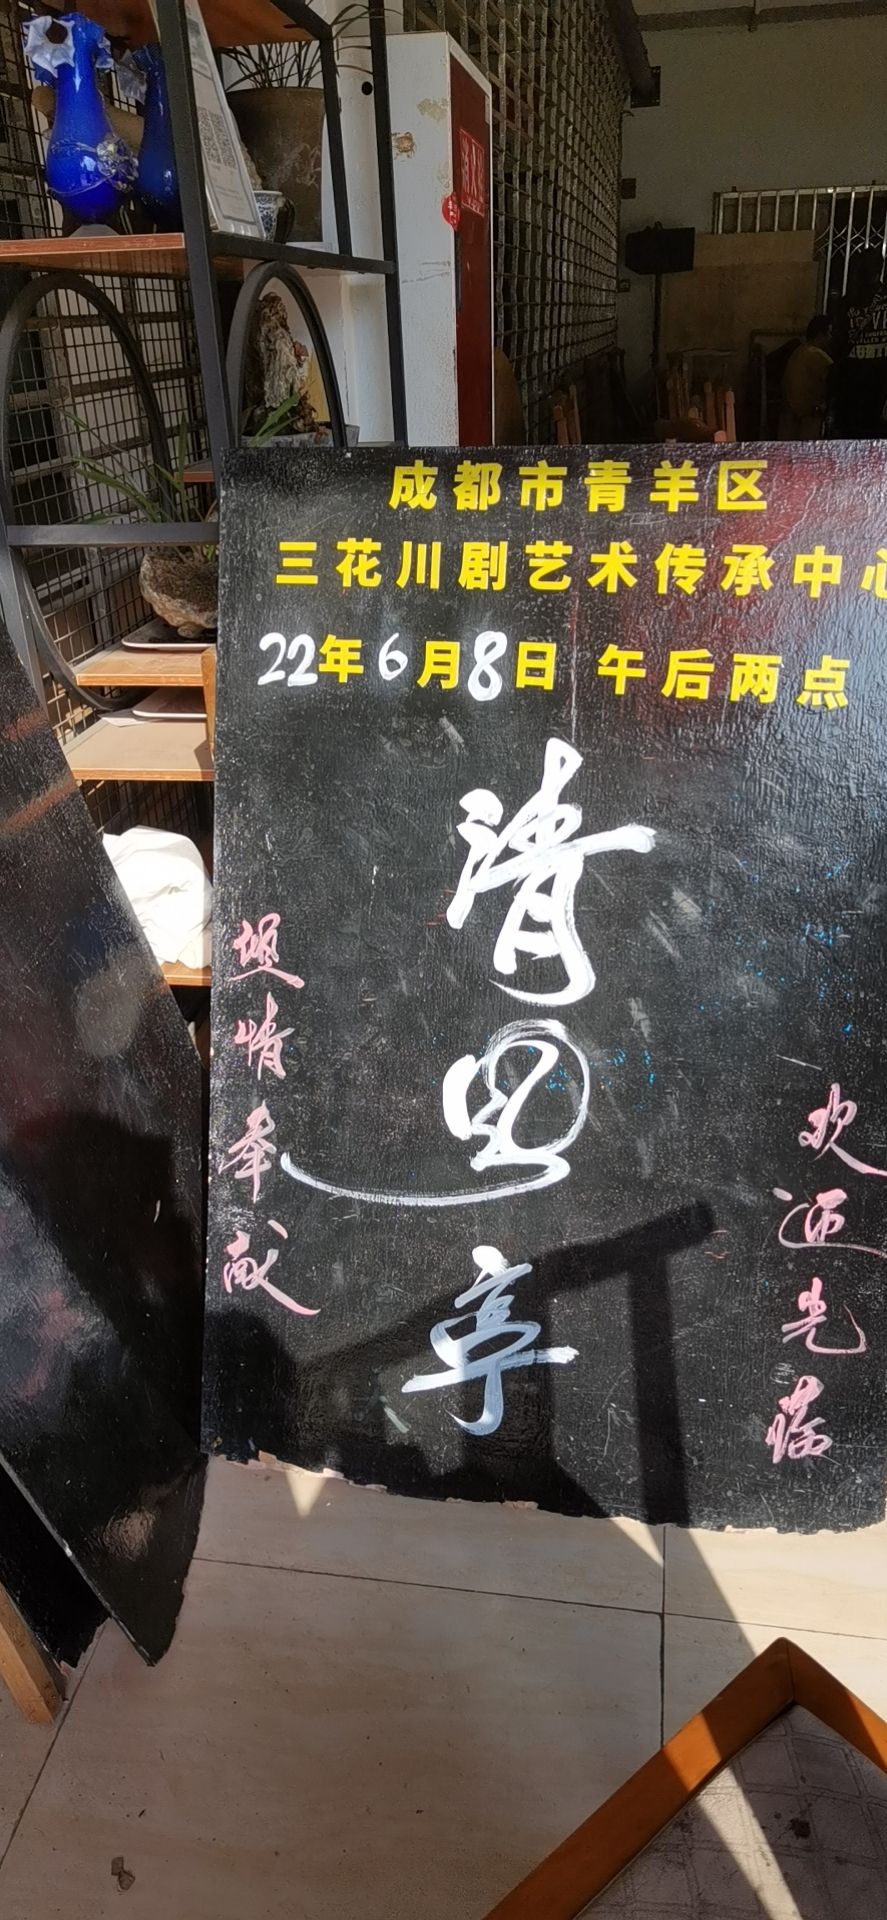 成都市青羊区
三花川剧艺术传承中心
22年6月8日 午后两点
清风亭
倾情奉献
欢迎光临